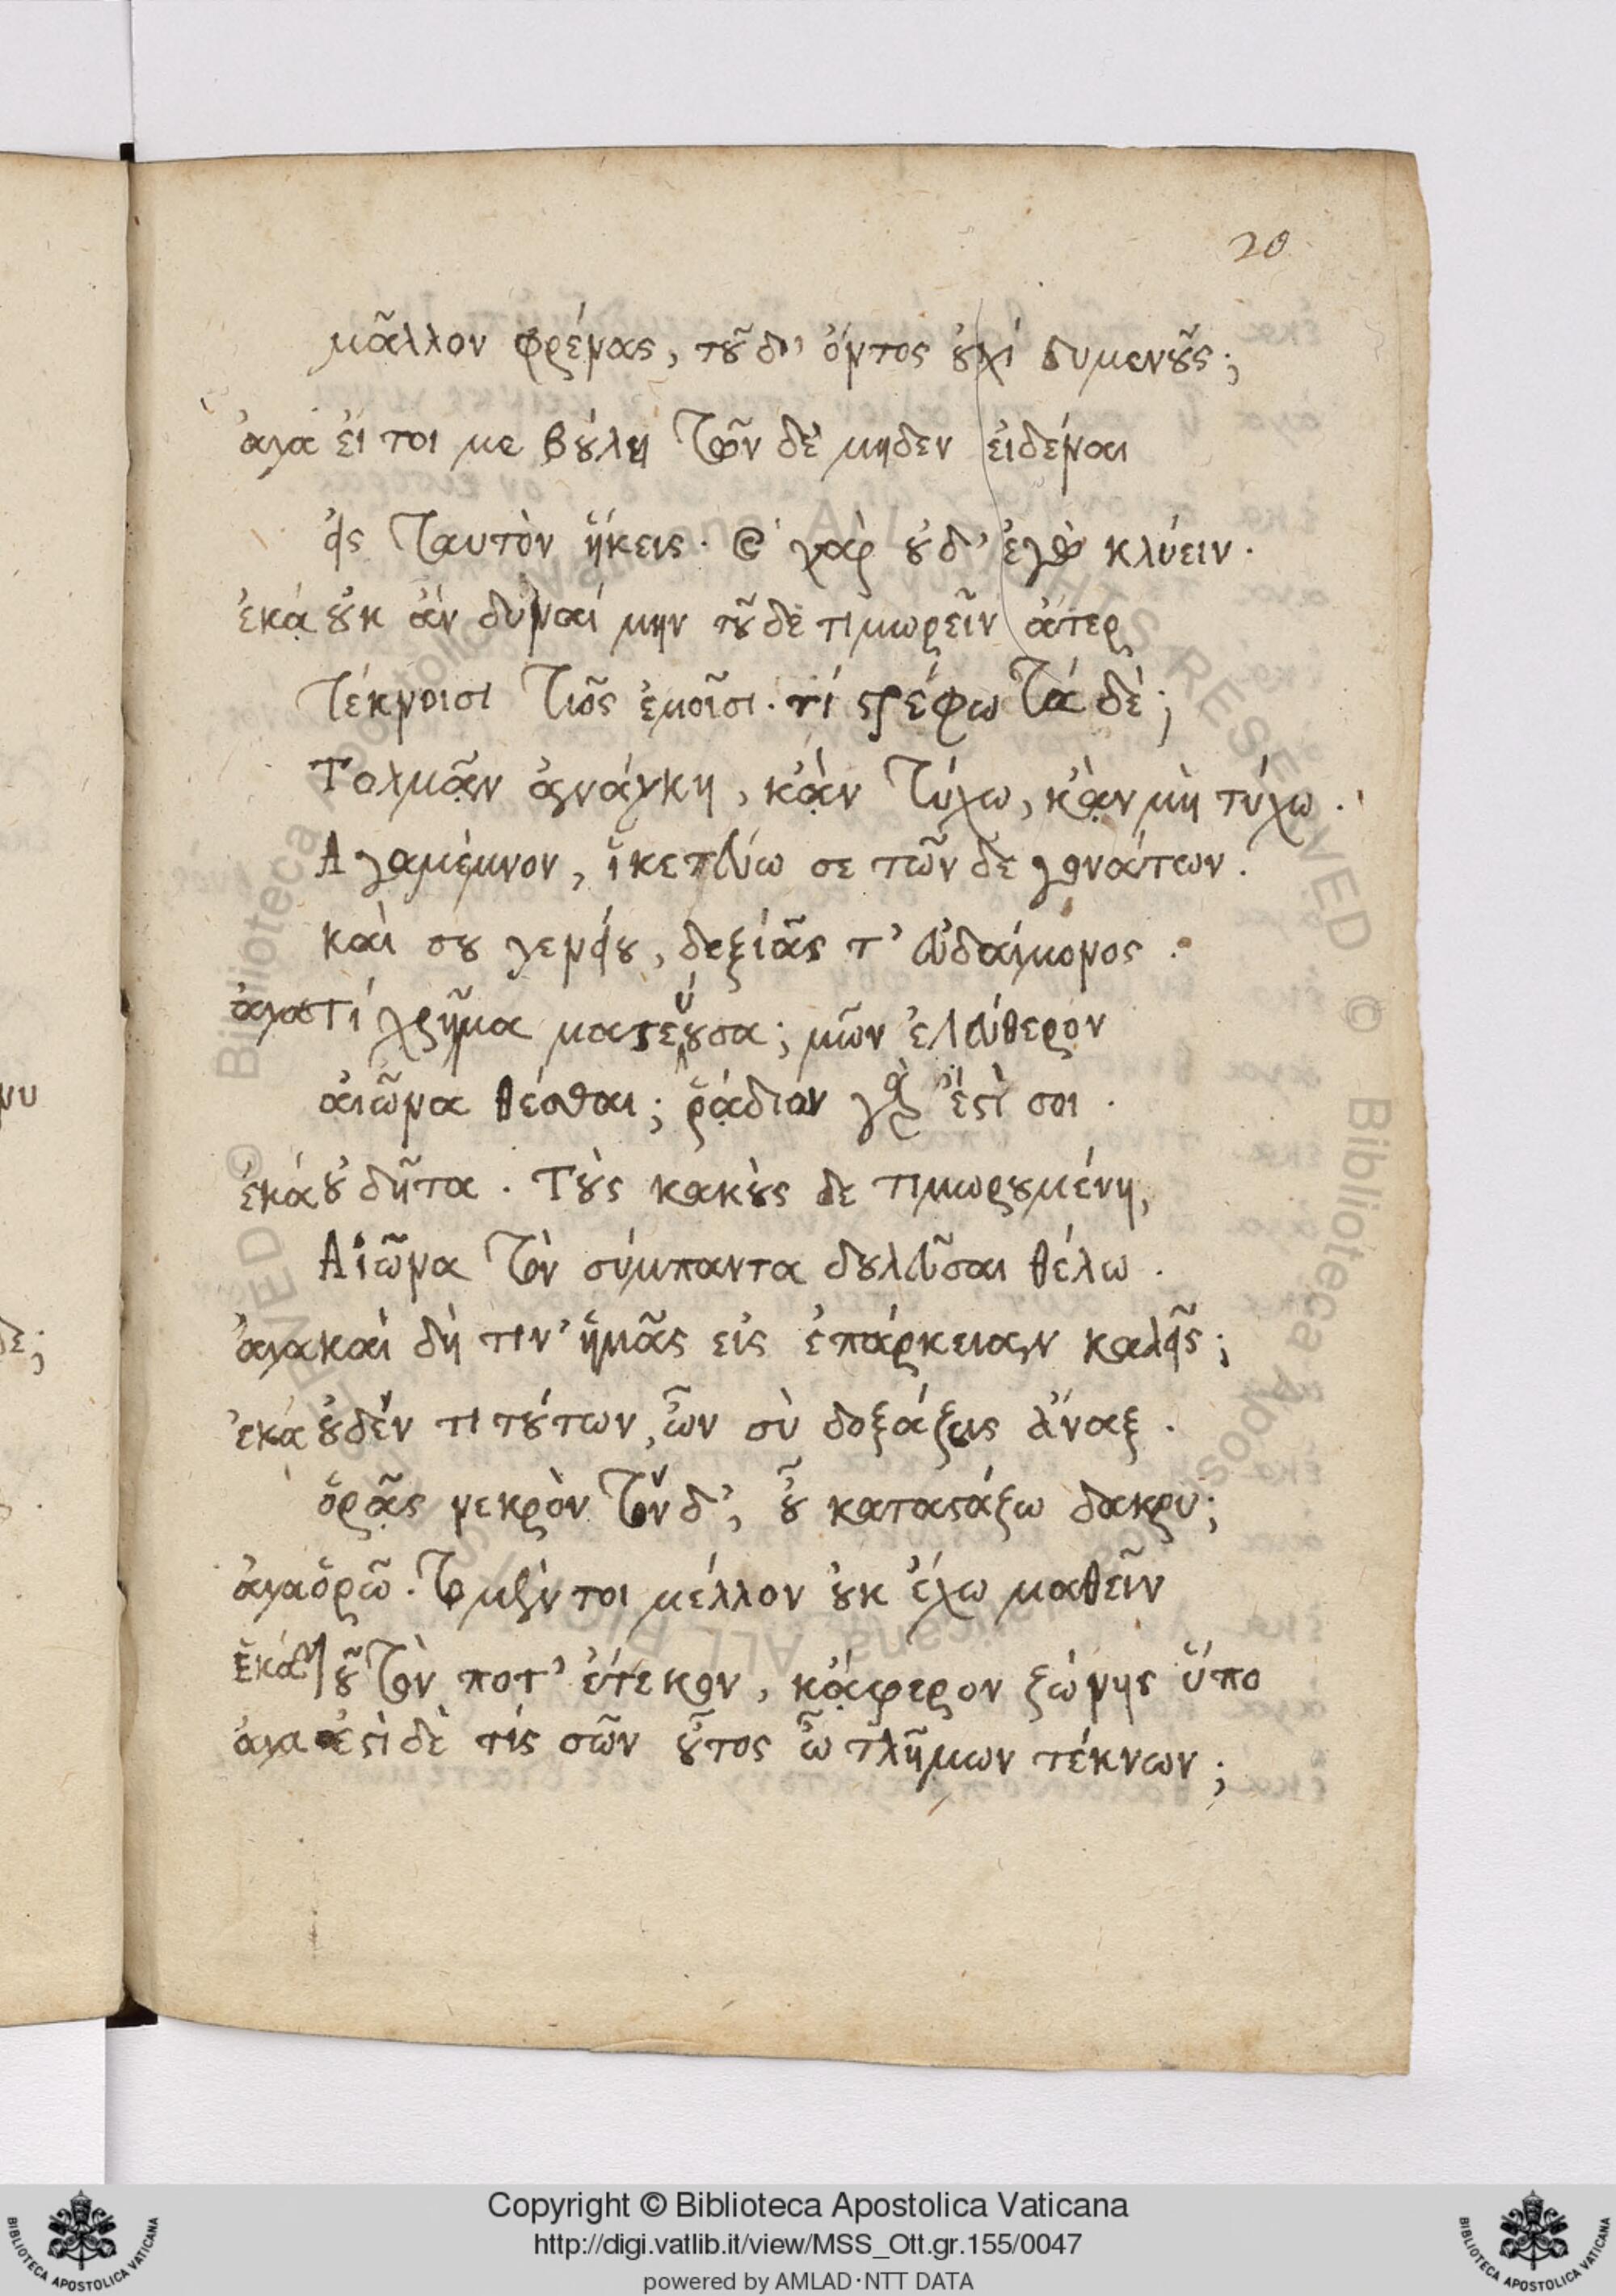 20
μᾶλλον φρένας, τοῦδ' ὄντος οὐχί δυμενοῦς;
ἀγα εἴ τοι με βούλῃ τῶν δὲ μηδεν εἰδέναι
ἐς ταυτὸν ἥκεις. καὶ γὰρ οὐδ' ἐγὼ κλύειν.
ἑκά οὐκ ἂν δυναί μην τοῦ δε τιμωρεῖν ἄτερ
τέκνοισι τοῖς ἐμοῖσι. τί στρέφω τά δὲ;
Τολμᾷν ἀνάγκη, κᾂν τύχω, κᾂν μὴ τύχω.
Αγαμέμνον, ἱκετεύω σε τῶν δε γονάτων.
καὶ σου γενείου, δεξιᾶς τ' εὐδαίμονος.
ἀγα τί χρῆμα ματεύουσα; μῶν ἐλεύθερον
αἰῶνα θέσθαι; ῥᾴδιον γὰρ ἐστὶ σοι.
ἑκά οὐ δῆτα. Τοὺς κακοὺς δε τιμωρουμένη,
Αἰῶνα τὸν σύμπαντα δουλεῦσαι θέλω.
ἀγα καὶ δὴ τίν' ἡμᾶς εἰς ἐπάρκειαν καλεῖς;
ἑκά οὐδέν τι τούτων, ὧν σὺ δοξάζεις ἄναξ.
ὁρᾷς νεκρὸν τόνδ', οὗ καταστάζω δακρυ;
ἀγα ὁρῶ. τὸ μέν τοι μέλλον οὐκ ἔχω μαθεῖν
ἑκά τοῦτον ποτ' ἔτεκον, κᾄφερον ζώνης ὕπο
ἀγα ἐστὶ δὲ τίς σῶν οὗτος ὦ τλῆμων τέκνων;
νυ
δε;
Copyright © Biblioteca Apostolica Vaticana
http://digi.vatlib.it/view/MSS_Ott.gr.155/0047
powered by AMLAD·NTT DATA
BIBLIOTECA APOSTOLICA VATICANA
BIBLIOTECA APOSTOLICA VATICANA